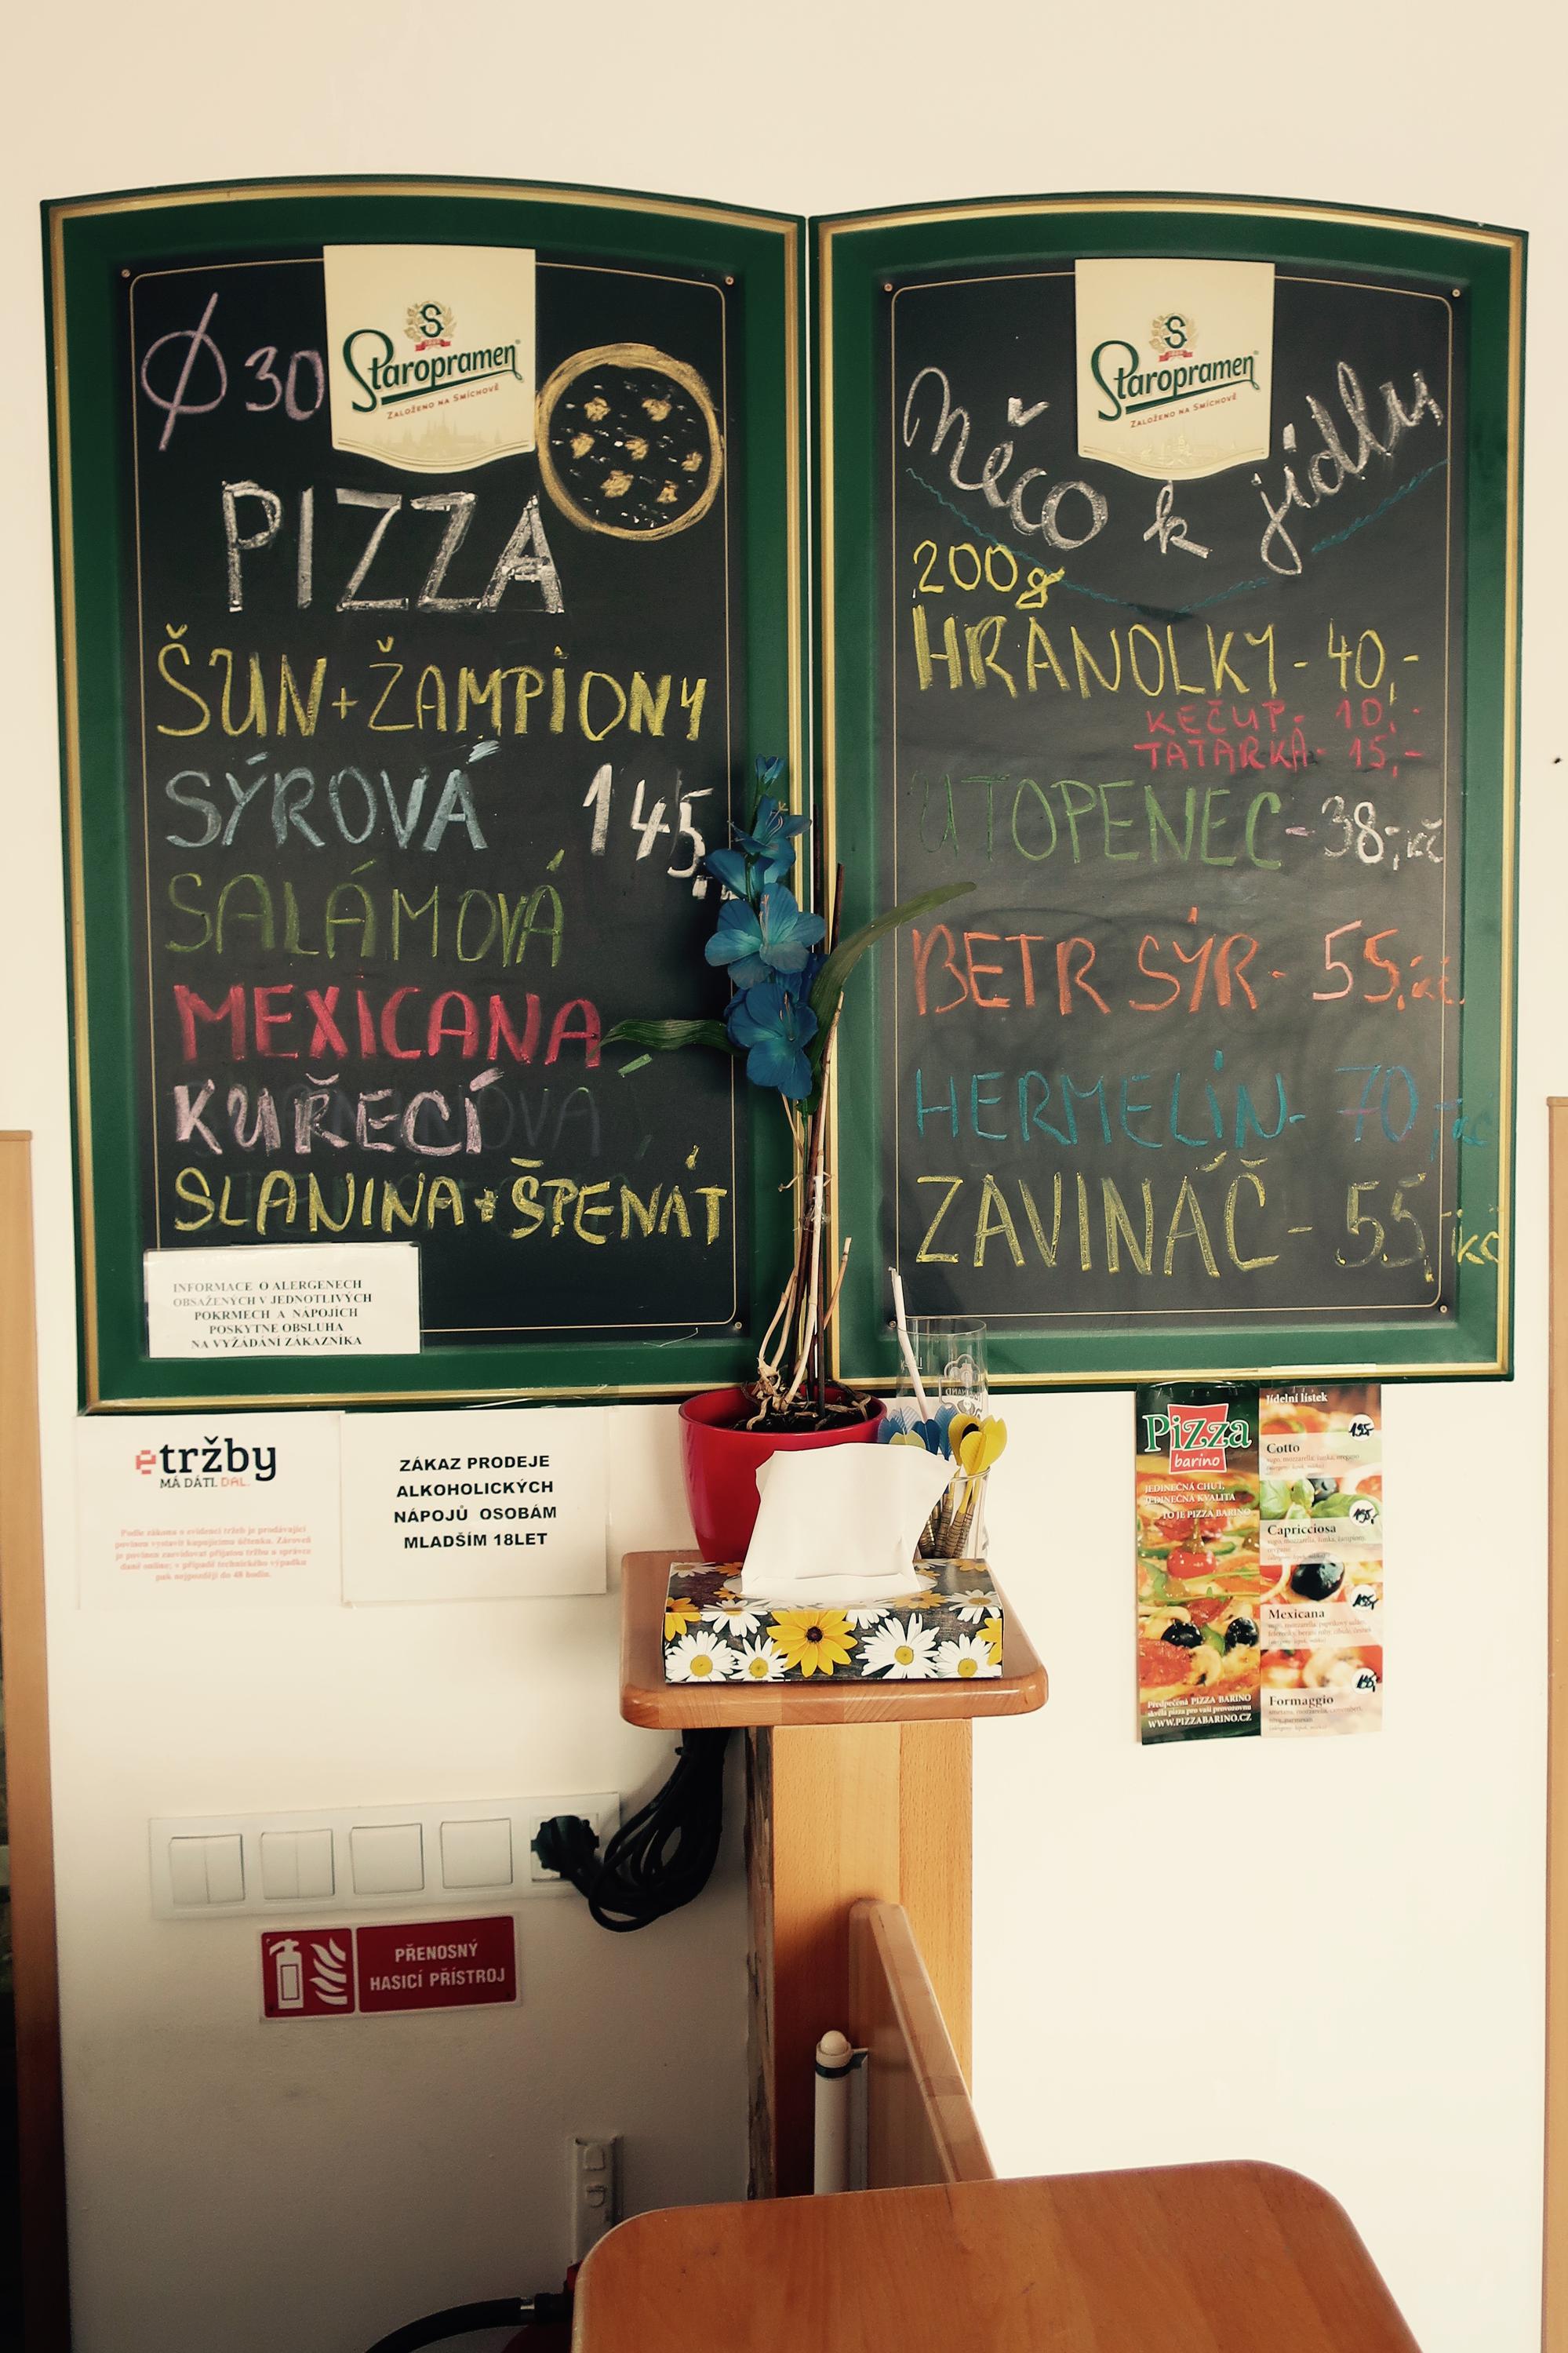 Ø 30
Staropramen
ZALOŽENO NA SMÍCHOVĚ
PIZZA
ŠUN+ŽAMPIONY
SÝROVÁ 145,
SALÁMOVÁ
MEXICANA
KUŘECÍ
SLANINA+ŠPENÁT
INFORMACE O ALERGENECH
OBSAŽENÝCH V JEDNOTLIVÝCH
POKRMECH A NÁPOJÍCH
POSKYTNE OBSLUHA
NA VYŽÁDÁNÍ ZÁKAZNÍKA
Staropramen
ZALOŽENO NA SMÍCHOVĚ
Něco k jídlu
200g
HRANOLKY - 40,-
KEČUP - 10,-
TATARKA - 15,-
UTOPENEC - 38,-kč
BETR SÝR - 55,-kč
HERMELÍN - 70,-kč
ZAVINÁČ - 55,-kč
etržby
MÁ DÁTI. DAL.
Podle zákona o evidenci tržeb je prodávající
povinen vystavit kupujícímu účtenku. Zároveň
je povinen zaevidovat přijatou tržbu u správce
daně online; v případě technického výpadku
pak nejpozději do 48 hodin.
ZÁKAZ PRODEJE
ALKOHOLICKÝCH
NÁPOJŮ OSOBÁM
MLADŠÍM 18LET
Pizza
barino
JEDINEČNÁ CHUŤ,
JEDINEČNÁ KVALITA
TO JE PIZZA BARINO
Předpečená PIZZA BARINO
skvělá pizza pro vaši provozovnu
WWW.PIZZABARINO.CZ
Jídelní lístek
Cotto
Capricciosa
Mexicana
Formaggio
PŘENOSNÝ
HASICÍ PŘÍSTROJ